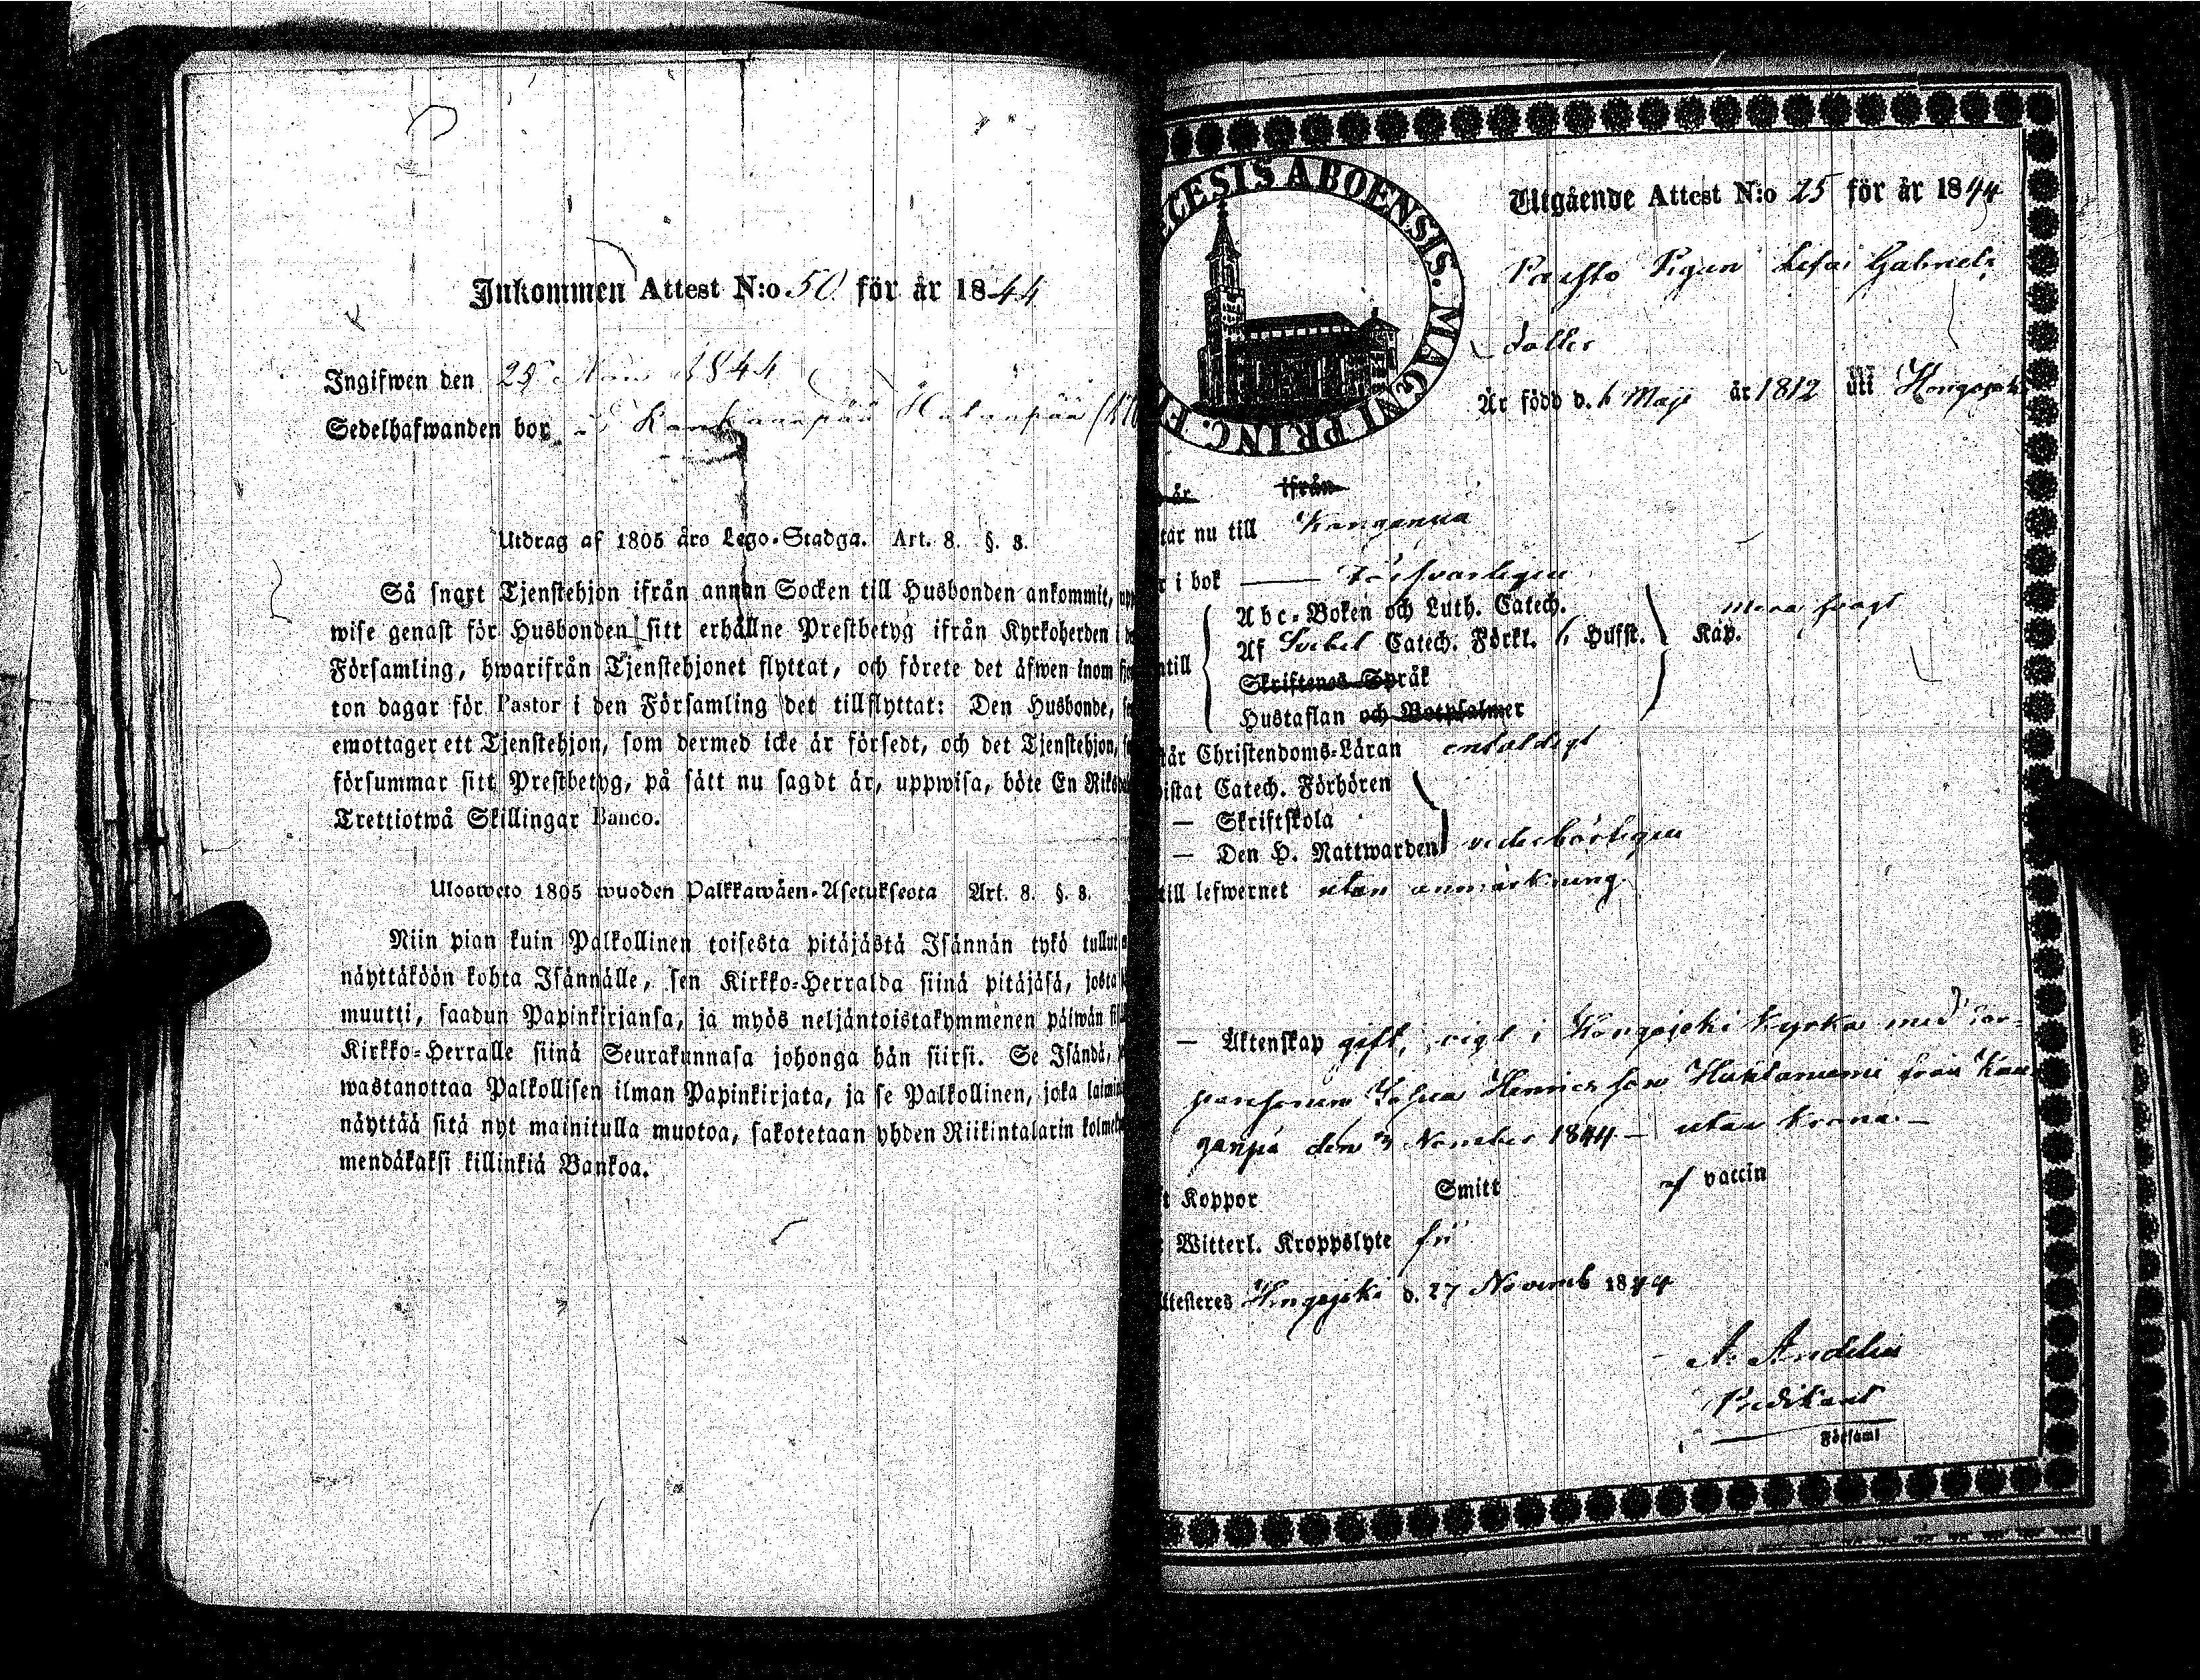 Inkommen Attest N:o 50 för år 1844
Ingifwen den 29 Nov 1844
Sedelhafwanden bor Kankaanpää
Utdrag af 1805 års Lego-Stadga. Art. 8. §. 3.
Så snart Tjenstehjon ifrån annan Socken till Husbonden ankommit, upp
wise genast för Husbonden sitt erhållne Prestbetyg ifrån Kyrkoherden i de
Församling, hwarifrån Tjenstehjonet flyttat, och förete det äfwen inom fjor
ton dagar för Pastor i den Församling det tillflyttat: Den Husbonde, so
emottager ett Tjenstehjon, som dermed icke är försedt, och det Tjenstehjon, so
försummar sitt Prestbetyg, på sätt nu sagdt är, uppwisa, böte En Riksd
Trettiotwå Skillingar Banco.
Ulosweto 1805 wuoden Palkkawäen-Asetuksesta Art. 8. §. 3.
Niin pian kuin Palkollinen toisesta pitäjästä Isännän tykö tullut o
näyttäköön kohta Isännälle, sen Kirkko-Herralda siinä pitäjäsä, josta h
muutti, saadun Papinkirjansa, ja myös neljäntoistakymmenen päiwän si
Kirkko-Herralle siinä Seurakunnasa johonga hän siirsi. Se Isändä,
wastanottaa Palkollisen ilman Papinkirjata, ja se Palkollinen, joka laimi
näyttää sitä nyt mainitulla muotoa, sakotetaan yhden Riikintalarin kolme
mendäkaksi killinkiä Bankoa.
CESIS ABOENSIS. MAGNI PRINC. F
Utgående Attest N:o 25 för år 1844
Pigan Lisa Gabriels
dotter
Är född d. 6 Maji år 1812 uti Hongojoki
år ifrån
tar nu till Kanganpä
r i bok försvarligen
Abc-Boken och Luth. Catech.
Af Svebel Catech. Förkl. Hufst. Kap.
ntill
Skriftenes Språk
Hustaflan och Botpsalmer
tår Christendoms-Läran enfaldigt
istat Catech. Förhören
— Skriftskola
— Den H. Nattwarden vederbörligen
till lefwernet utan anmärkning
— Äktenskap gift, vigd i Hongojoki Kyrka med Tor-
parsonen Josua Henricsson från Kan-
ganpä den 3 November 1844 — utan krona. —
t Koppor Smitt af vaccin
Witterl. Kroppslyte fri
ttesteres Hongojoki d. 27 Novemb 1844
Predikant
Församl